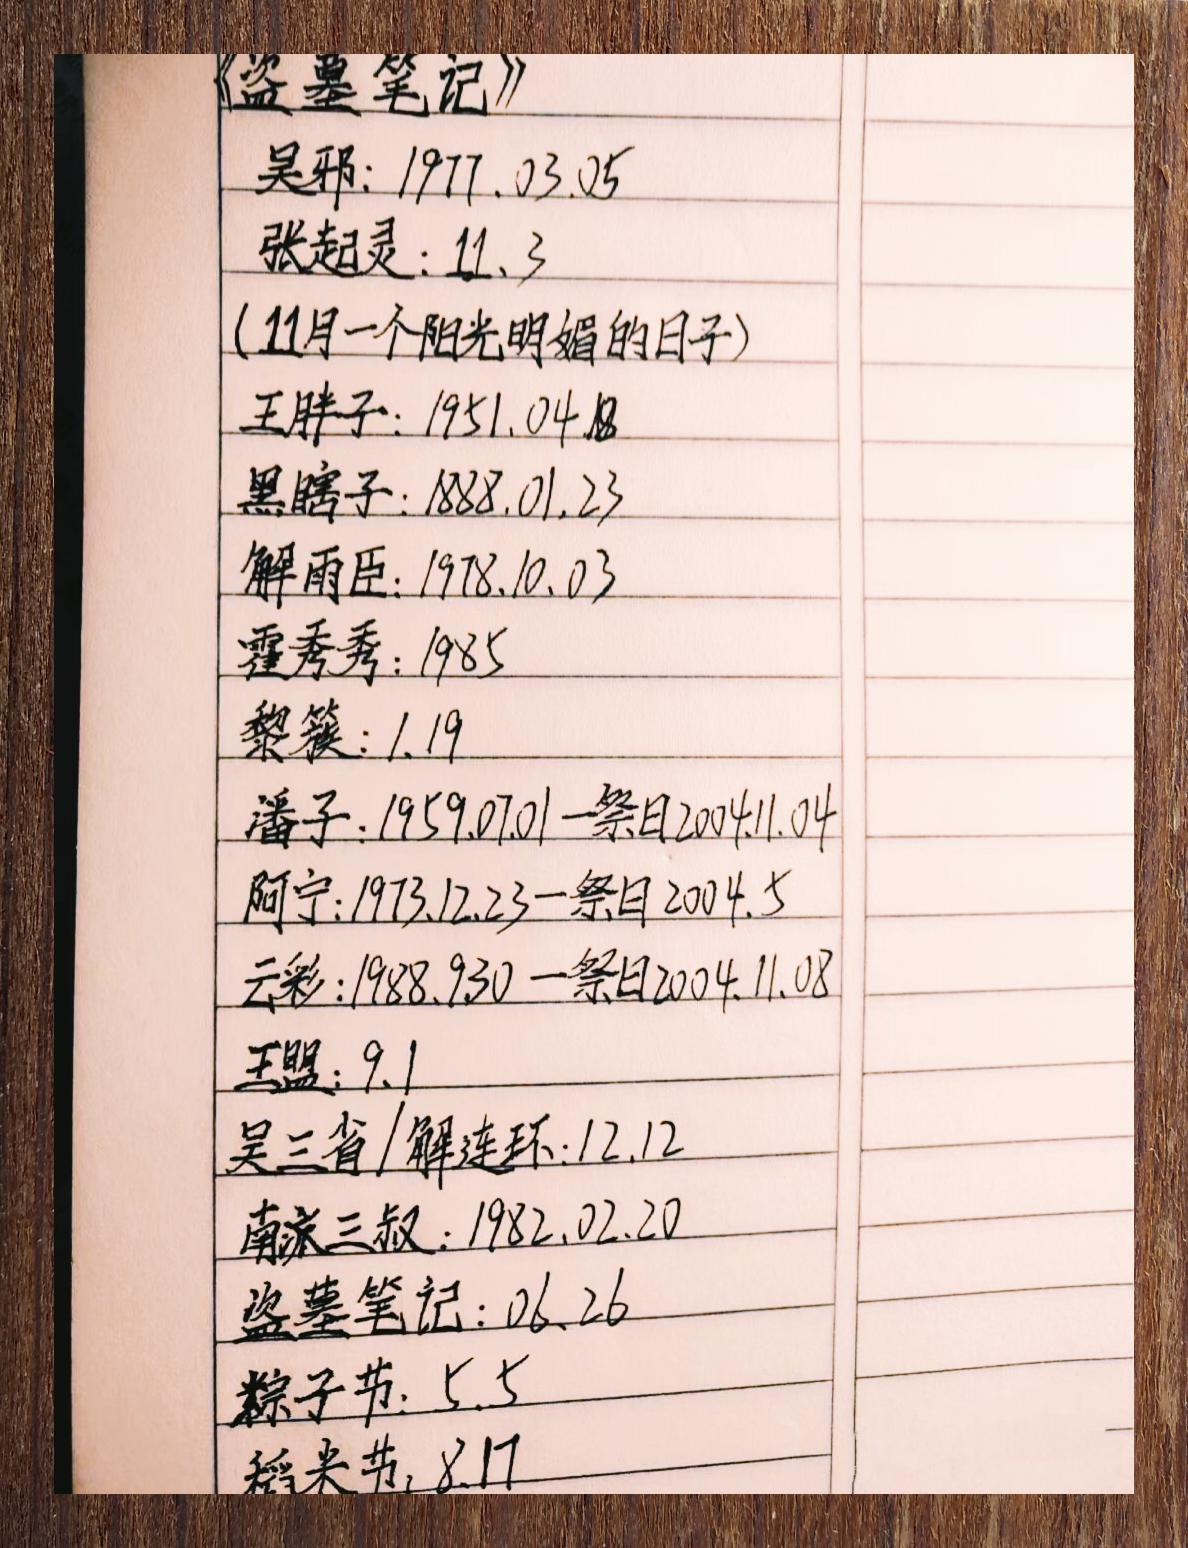 《盗墓笔记》
吴邪：1977.03.05
张起灵：11.3
（11月一个阳光明媚的日子）
王胖子：1951.04.18
黑瞎子：1888.01.23
解雨臣：1978.10.03
霍秀秀：1985
黎簇：1.19
潘子：1959.07.01—祭日2004.11.04
阿宁：1973.12.23—祭日2004.5
云彩：1988.9.30—祭日2004.11.08
王盟：9.1
吴三省/解连环：12.12
南派三叔：1982.02.20
盗墓笔记：06.26
粽子节：5.5
稻米节：8.17